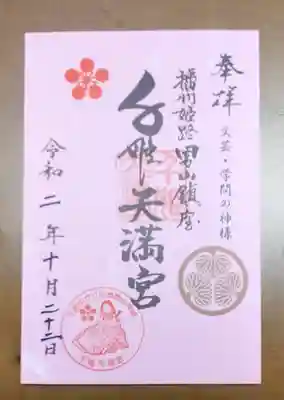 奉拝
文芸・学問の神様
播州姫路 男山鎮座
千姫天満宮
令和二年十月二十二日